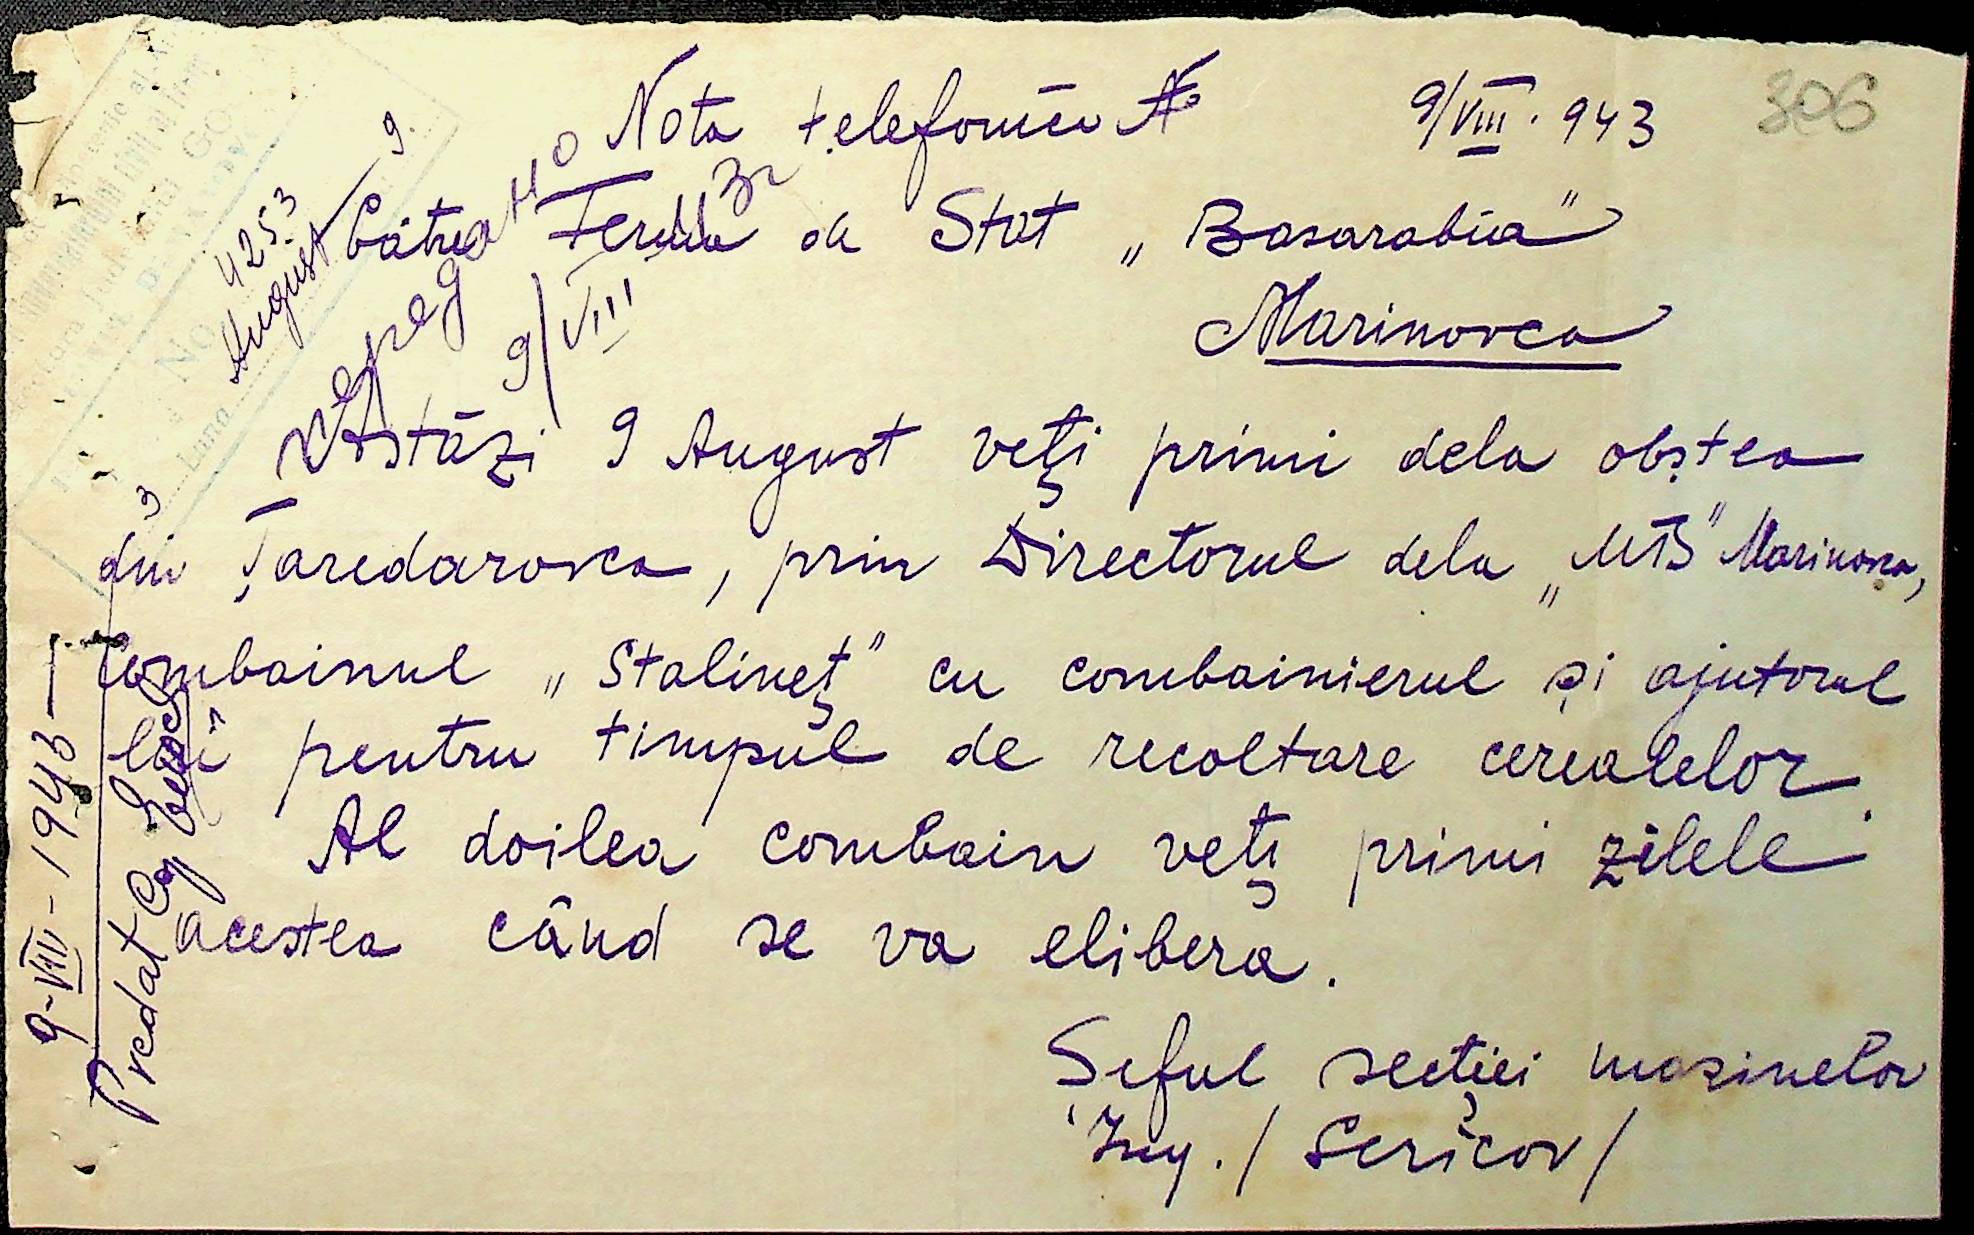 Nota telefonica №
9/VIII. 943
306
4253
August 9.
Cătrea Ferma de Stat „Basarabia"
Marinovca
передано
9/VIII
Astăzi 9 August veţi primi dela obştea
din Ţaredarovca, prin Directorul dela „MTS" Marinovca,
combainul „Stalineţ" cu combainierul şi ajutorul
lui pentru timpul de recoltare cerealelor.
Al doilea combain veţi primi zilele
acestea când se va elibera.
Şeful secţiei maşinelor
Ing. / Sericov /
9-VIII-1943
Predat